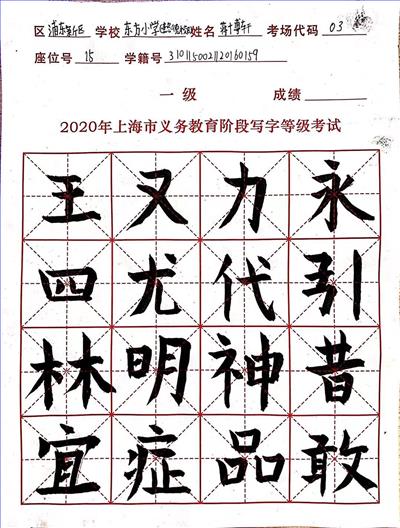 区 浦东新区 学校 东方小学 姓名 蒋 轩 考场代码 03
座位号 15 学籍号 3101150021120160159
一级 成绩
2020年上海市义务教育阶段写字等级考试
王又力永
四尤代引
林明神昔
宜症品敢